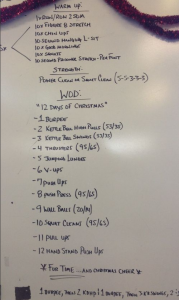 WARM UP
10x FIGURE 8 STRETCH
10x CHIN UPS
10 SECOND HANGING L-SIT
10x SQUATS
STRENGTH:
POWER CLEAN OR SQUAT CLEAN (5-5-3-3-3)
WOD:
"12 DAYS OF CHRISTMAS"
-1 BURPEE
-2 KETTLE BELL HIGH PULLS (53/35)
-3 KETTLE BELL SWINGS (53/35)
-4 THRUSTERS (95/65)
-5 JUMPING LUNGES
-6 V-UPS
-7 PUSH UPS
-8 PUSH PRESS (95/65)
-9 WALL BALLS (20/14)
-10 SQUAT CLEANS (95/65)
-11 PULL UPS
-12 HAND STAND PUSH UPS
* FOR TIME ... AND CHRISTMAS CHEER *
1 BURPEE, THEN 2 KBHP + 1 BURPEE, THEN